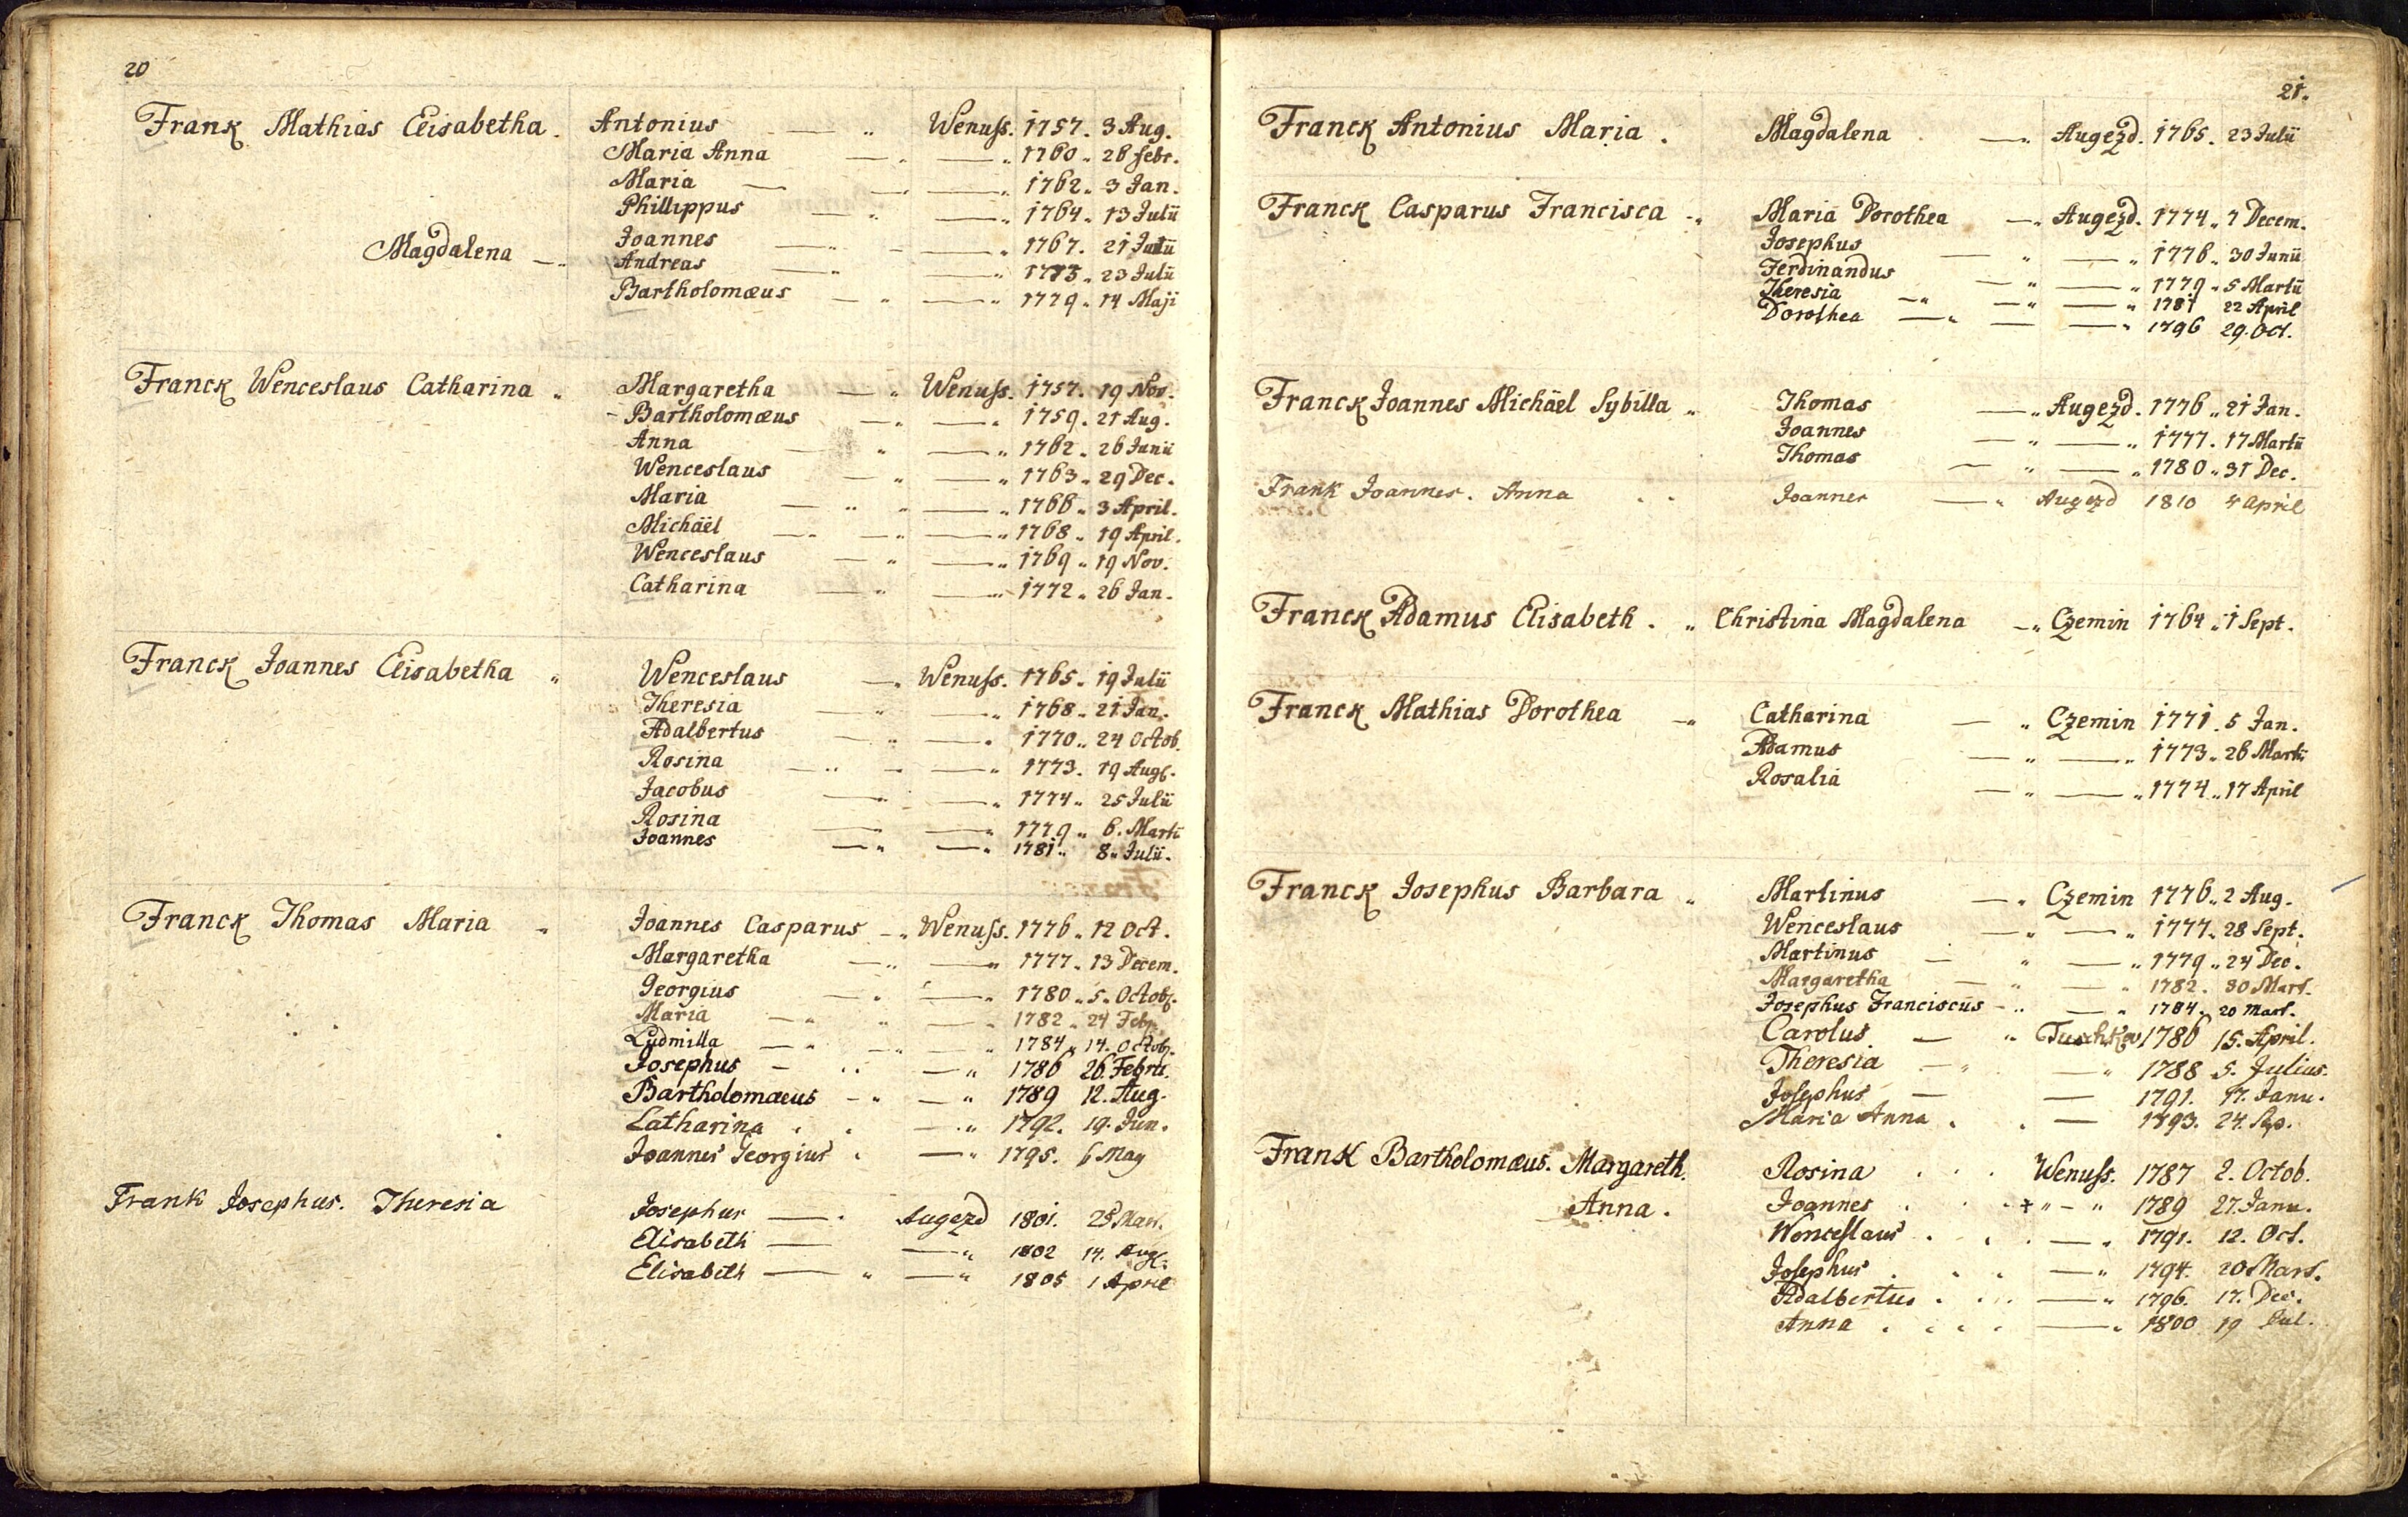 20
Frank Mathias Elisabetha. Antonius — " Wenuss. 1757. 3 Aug.
Maria Anna — " — " 1760 " 28 febr.
Maria — — " — " 1762 " 3 Jan.
Phillippus — " — " 1764 " 13 Julii
Joannes — " — " 1767. 21 Julii
Magdalena — " Andreas — " — " 1773 " 23 Julii
Bartholomæus — " — " 1779 " 14 Maji
Franck Wenceslaus Catharina " Margaretha — " Wenuss. 1757. 19 Nov.
- Bartholomæus — " — " 1759. 21 Aug.
Anna " — " 1762 " 26 Junii
Wenceslaus — " — " 1763 " 29 Dec.
Maria — " " — " 1766 " 3 April.
Michäel — " — " — " 1768 " 19 April.
Wenceslaus — " — " 1769 " 19 Nov.
Catharina — " — " 1772 " 26 Jan.
Franck Joannes Elisabetha " Wenceslaus — " Wenuss. 1765. 19 Julii
Theresia — " — " 1768 " 21 Jan.
Adalbertus — " — " 1770 " 24 Octob.
Rosina — " - — " 1773. 19 Aug.
Jacobus — " — " 1774 " 25 Julii
Rosina — " — " 1779 " 6. Martii
Joannes — " — " 1781 " 8 " Julii.
Franck Thomas Maria " Joannes Casparus — " Wenuss. 1776 " 12 Oct.
Margaretha — " — " 1777 " 13 Decem.
Georgius — " — " 1780 " 5 " Octob.
Maria — " " — " 1782 " 24 Feb.
Ludmilla — " — " — " 1784 " 14. Octob.
Josephus — " — " 1786 26. Febru.
Bartholomaeus — " — " 1789 12. Aug.
Catharina . . — " 1792. 19. Jun.
Joannes Georgius . — " 1795. 6 May
Frank Josephus. Theresia Josephus — . Augezd 1801. 28 Mart.
Elisabeth — — " 1802 14. Aug.
Elisabeth — " — " 1805 1 April
21.
Franck Antonius Maria . Magdalena . — " Augezd. 1765. 23 Julii
Franck Casparus Francisca " Maria Dorothea — " Augezd. 1774 " 7 Decem.
Josephus — " — " 1776 " 30 Junii
Ferdinandus — " — " 1779 " 5 Martii
Theresia — " — " — " 1781 22 April
Dorothea — " — — " 1796 29. Oct.
Franck Joannes Michäel Sybilla " Thomas — " Augezd. 1776 " 21 Jan.
Joannes — " — " 1777. 17 Martii
Thomas — " — " 1780 " 31 Dec.
Frank Joannes. Anna . . Joannes — " Augezd 1810 4 April
Franck Adamus Elisabeth . " Christina Magdalena — " Czemin 1764 " 1 Sept.
Franck Mathias Dorothea — " Catharina — " Czemin 1771. 5 Jan.
Adamus — " — " 1773 " 26 Martii
Rosalia — " — " 1774 " 17 April
Franck Josephus Barbara " Martinus — " Czemin 1776 " 2 Aug.
Wenceslaus — " — " 1777 " 28 Sept.
Martinus — " — " 1779 " 24 Dec.
Margaretha — " — " 1782. 30 Mart.
Josephus Franciscus — " — " 1784 " 20 Mart.
Carolus. — " Tuschkov 1786 15. April.
Theresia — " — " 1788 5. Julius.
Josephus — — 1791. 17. Janu.
Maria Anna . . — 1793. 24. Sep.
Frank Bartholomæus. Margareth. Rosina . . . Wenuss. 1787 2. Octob.
Anna . Joannes . . . + " - " 1789 27. Janu.
Wenceslaus . . . — " 1791. 12. Oct.
Josephus . . . — " 1794. 20 Mart.
Adalbertus . . . — " 1796. 17. Dec.
Anna . . . . — " 1800 19 Jul.